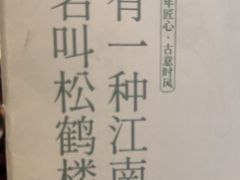 有一种江南
名叫松鹤楼
年匠心·古意时风